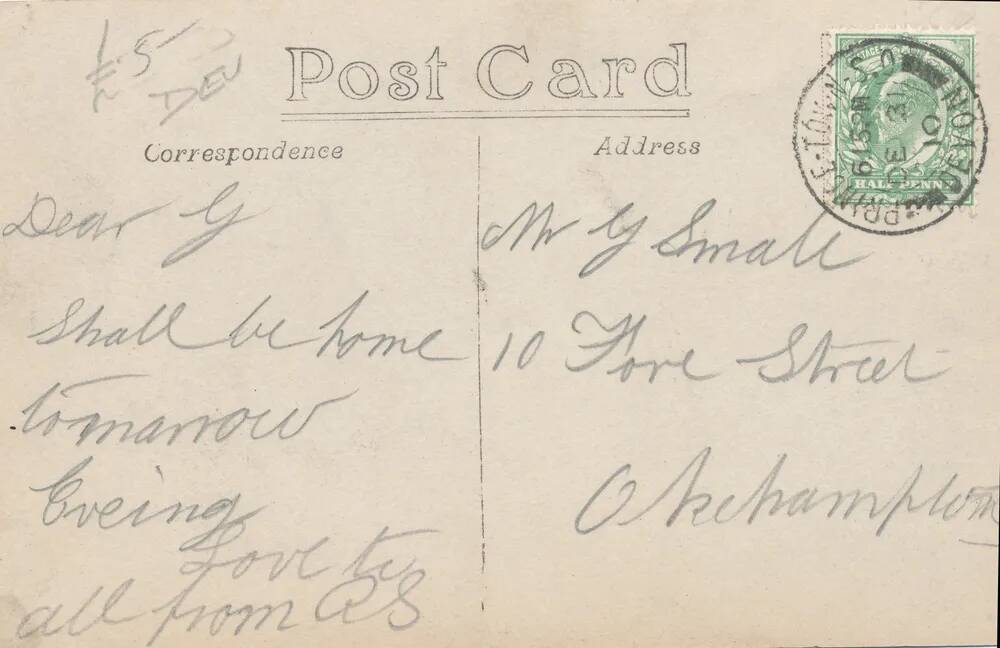 £5
DEV
Post Card
Correspondence
Address
POSTAGE
HALFPENNY
PRINCE-TOWN-S.O
DEVON
6 15 PM
DE 31
10
Dear G
Shall be home
tomarrow
Eveing
Love to
all from RS
Mr G Small
10 Fore Street
Okehampton